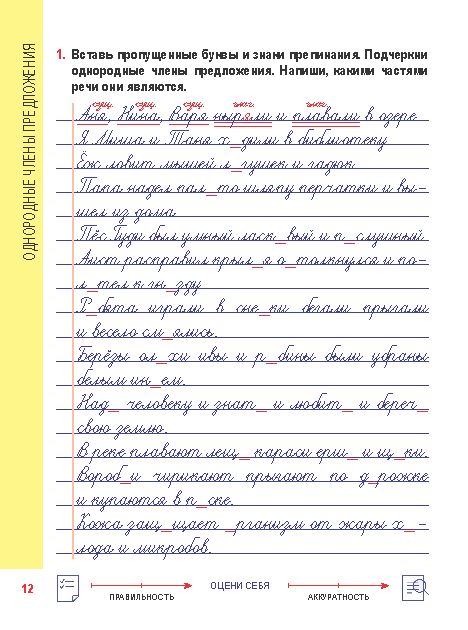 ОДНОРОДНЫЕ ЧЛЕНЫ ПРЕДЛОЖЕНИЯ
1. Вставь пропущенные буквы и знаки препинания. Подчеркни
однородные члены предложения. Напиши, какими частями
речи они являются.
сущ. сущ. сущ. глаг. глаг.
Аня, Нина, Варя ныряли и плавали в озере
Я Миша и Таня х_дили в библиотеку
Ёж ловит мышей л_гушек и гадюк
Папа надел пал_то шляпу перчатки и вы-
шел из дома
Пёс Туди был умный ласк_вый и п_слушный.
Аист расправил крыл_я о_толкнулся и по-
л_тел к гн_зду
Р_бята играли в сне_ки бегали прыгали
и весело см_ялись.
Берёзы ол_хи ивы и р_бины были убраны
белым ин_ем.
Над_ человеку и знат_ и любит_ и береч_
свою землю.
В реке плавают лещ_ караси ерш_ и щ_ки.
Вороб_и чирикают прыгают по д_рожке
и купаются в п_ске.
Кожа защ_щает _рганизм от жары х_-
лода и микробов.
12
ПРАВИЛЬНОСТЬ
ОЦЕНИ СЕБЯ
АККУРАТНОСТЬ